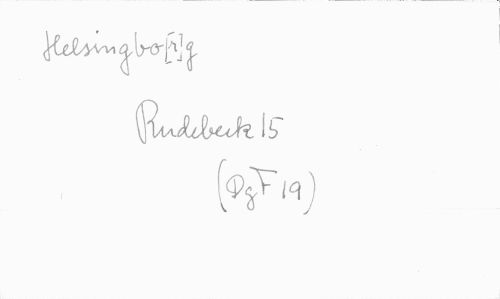 Helsingbo[r]g
Rudebeck 15
(DgF 19)